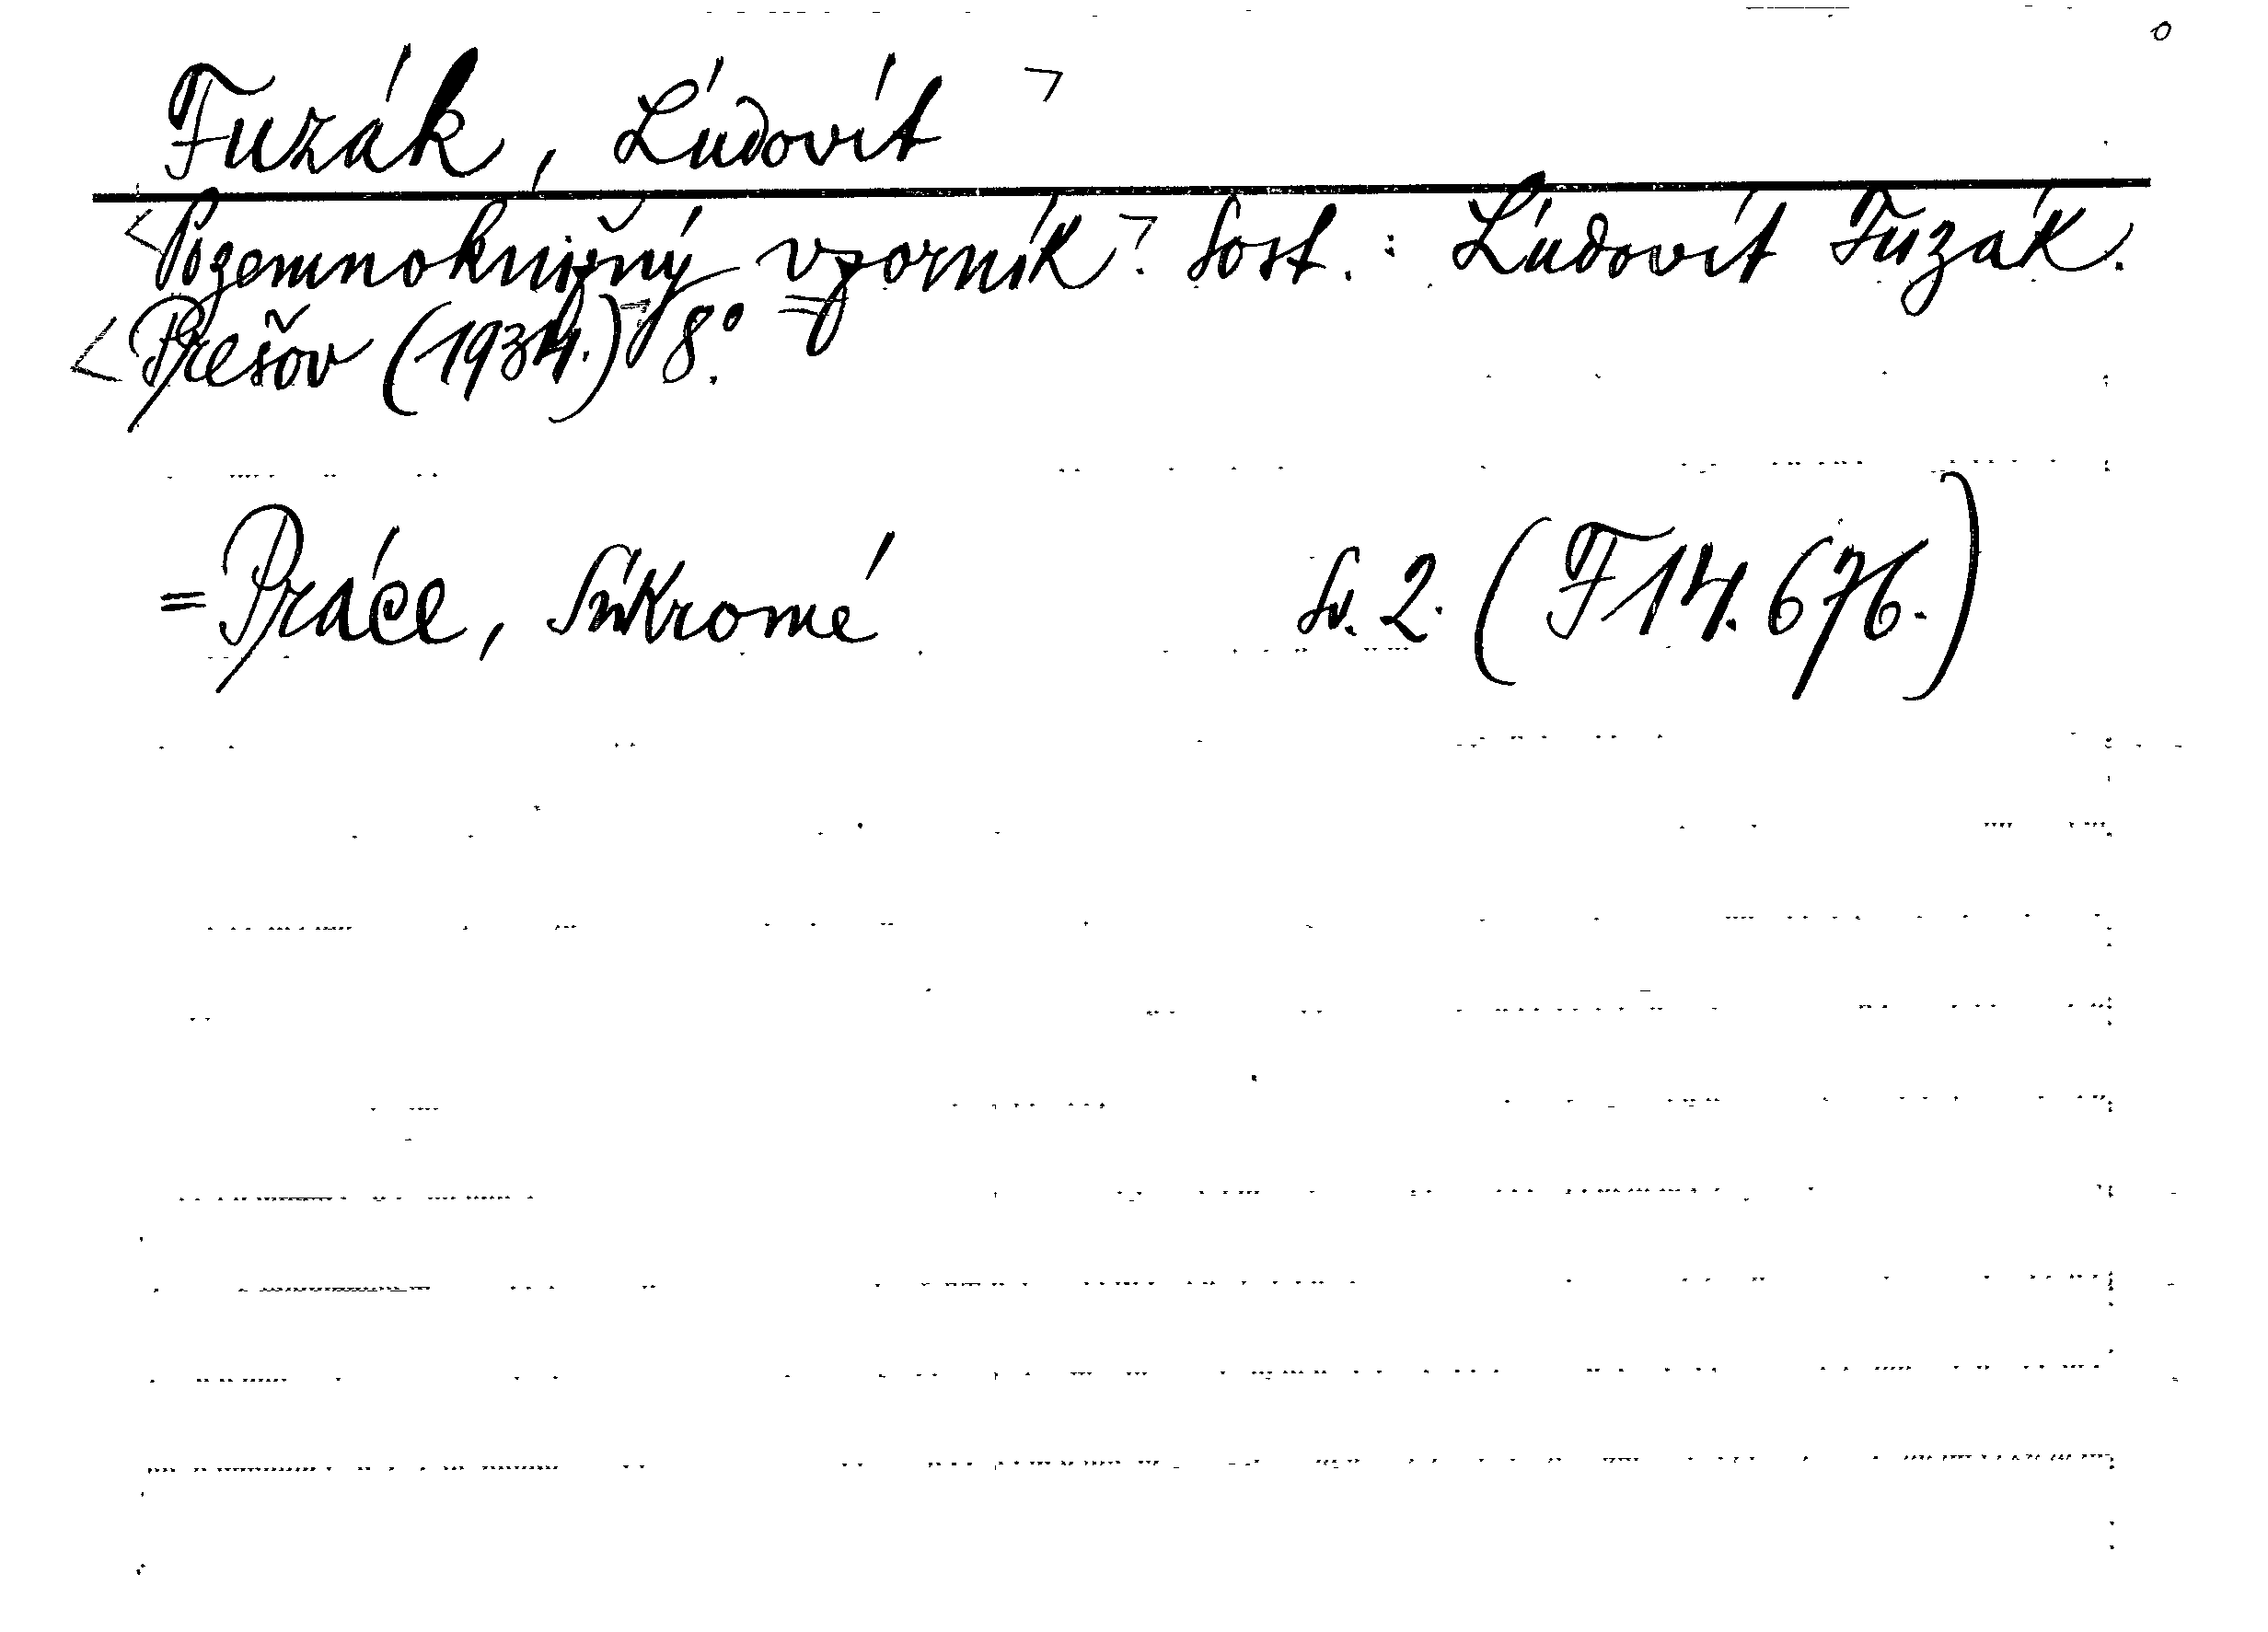 Fuzák, Ľúdovít ⌝
<Pozemnoknižný vzorník⌝. Sost.: Ľúdovít Fuzák.
<Prešov (1934.)⌝ 8°.
=Práce, Súkromé Sv. 2. (F14.676.)